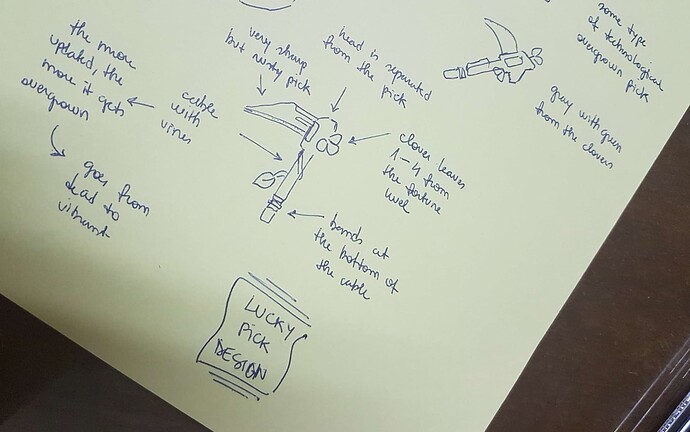 the more
updated, the
more it gets
overgrown
goes from
dead to
vibrant
cable
with
vines
very sharp
but rusty pick
head is separated
from the pick
clover leaves
1-4 from
the fortune
level
bands at
the bottom of
the cable
some type
of technological
overgrown pick
gray with green
from the clovers
LUCKY
PICK
DESIGN